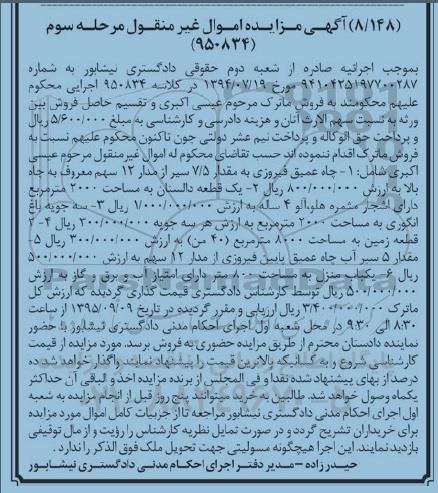 (۸/۱۴۸) آگهی مزایده اموال غیر منقول مرحله سوم
(۹۵۰۸۳۴)
بموجب اجرائیه صادره از شعبه دوم حقوقی دادگستری نیشابور به شماره
مورخ ۱۳۹۴/۰۷/۱۹ در کلاسه ۹۵۰۸۳۴ اجرایی محکوم
علیهم محکومند به فروش ماترک مرحوم عیسی اکبری و تقسیم حاصل فروش بین
ورثه به نسبت سهم الارث آنان و هزینه دادرسی و کارشناسی به مبلغ ۵/۶۰۰/۰۰۰ ریال
و پرداخت حق الوکاله و پرداخت نیم عشر دولتی چون تاکنون محکوم علیهم نسبت به
فروش ماترک اقدام ننموده اند حسب تقاضای محکوم له اموال غیرمنقول مرحوم عیسی
اکبری شامل: ۱- چاه عمیق فیروزی به مقدار ۷/۵ سیر از مدار ۱۲ سهم معروف به چاه
بالا به ارزش ۸۰۰/۰۰۰/۰۰۰ ریال ۲- یک قطعه دالستان به مساحت ۲۰۰۰ مترمربع
دارای اشجار مثمره هلو آلو ۴ سله به ارزش ۱/۰۰۰/۰۰۰/۰۰۰ ریال ۳- سه جویه باغ
انگوری به مساحت ۲۰۰۰ مترمربع به ارزش هر سه جویه ۲۰۰/۰۰۰/۰۰۰ ریال ۴- ۲
قطعه زمین به مساحت ۸۰۰۰ مترمربع (۴۰ من) به ارزش ۳۰۰/۰۰۰/۰۰۰ ریال ۵-
مقدار ۵ سیر آب چاه عمیق پایین فیروزی از مدار ۱۲ سهم به ارزش ۵۰۰/۰۰۰/۰۰۰
ریال ۶- یکباب منزل به مساحت ۸۰۰ متر دارای امتیاز آب و برق و گاز به ارزش
۵۰۰/۰۰۰/۰۰۰ ریال توسط کارشناس دادگستری قیمت گذاری گردیده که ارزش کل
ماترک ۳/۴۰۰/۰۰۰/۰۰۰ ریال ارزیابی و مقرر گردیده در تاریخ ۱۳۹۵/۰۹/۰۹ از ساعت
۸:۳۰ الی ۹:۳۰ در محل شعبه اول اجرای احکام مدنی دادگستری نیشابور با حضور
نماینده دادستان محترم از طریق مزایده حضوری به فروش برسد. مورد مزایده از قیمت
کارشناسی شروع و به کسانیکه بالاترین قیمت را پیشنهاد نمایند واگذار خواهد شد ده
درصد از بهای پیشنهاد شده نقد و فی المجلس از برنده مزایده اخذ و لباقی آن حداکثر
یکماه وصول خواهد شد. طالبین به خرید میتوانند پنج روز قبل از انجام مزایده به شعبه
اول اجرای احکام مدنی دادگستری نیشابور مراجعه تا از جزئیات کامل اموال مورد مزایده
برای خریداران تشریح گردد و در صورت تمایل نظریه کارشناس را رؤیت و از مال توقیفی
بازدید نمایند. این اجرا هیچگونه مسئولیتی جهت تحویل ملک فوق الذکر را ندارد.
حیدرزاده – مدیر دفتر اجرای احکام مدنی دادگستری نیشابور
ParsNamadData